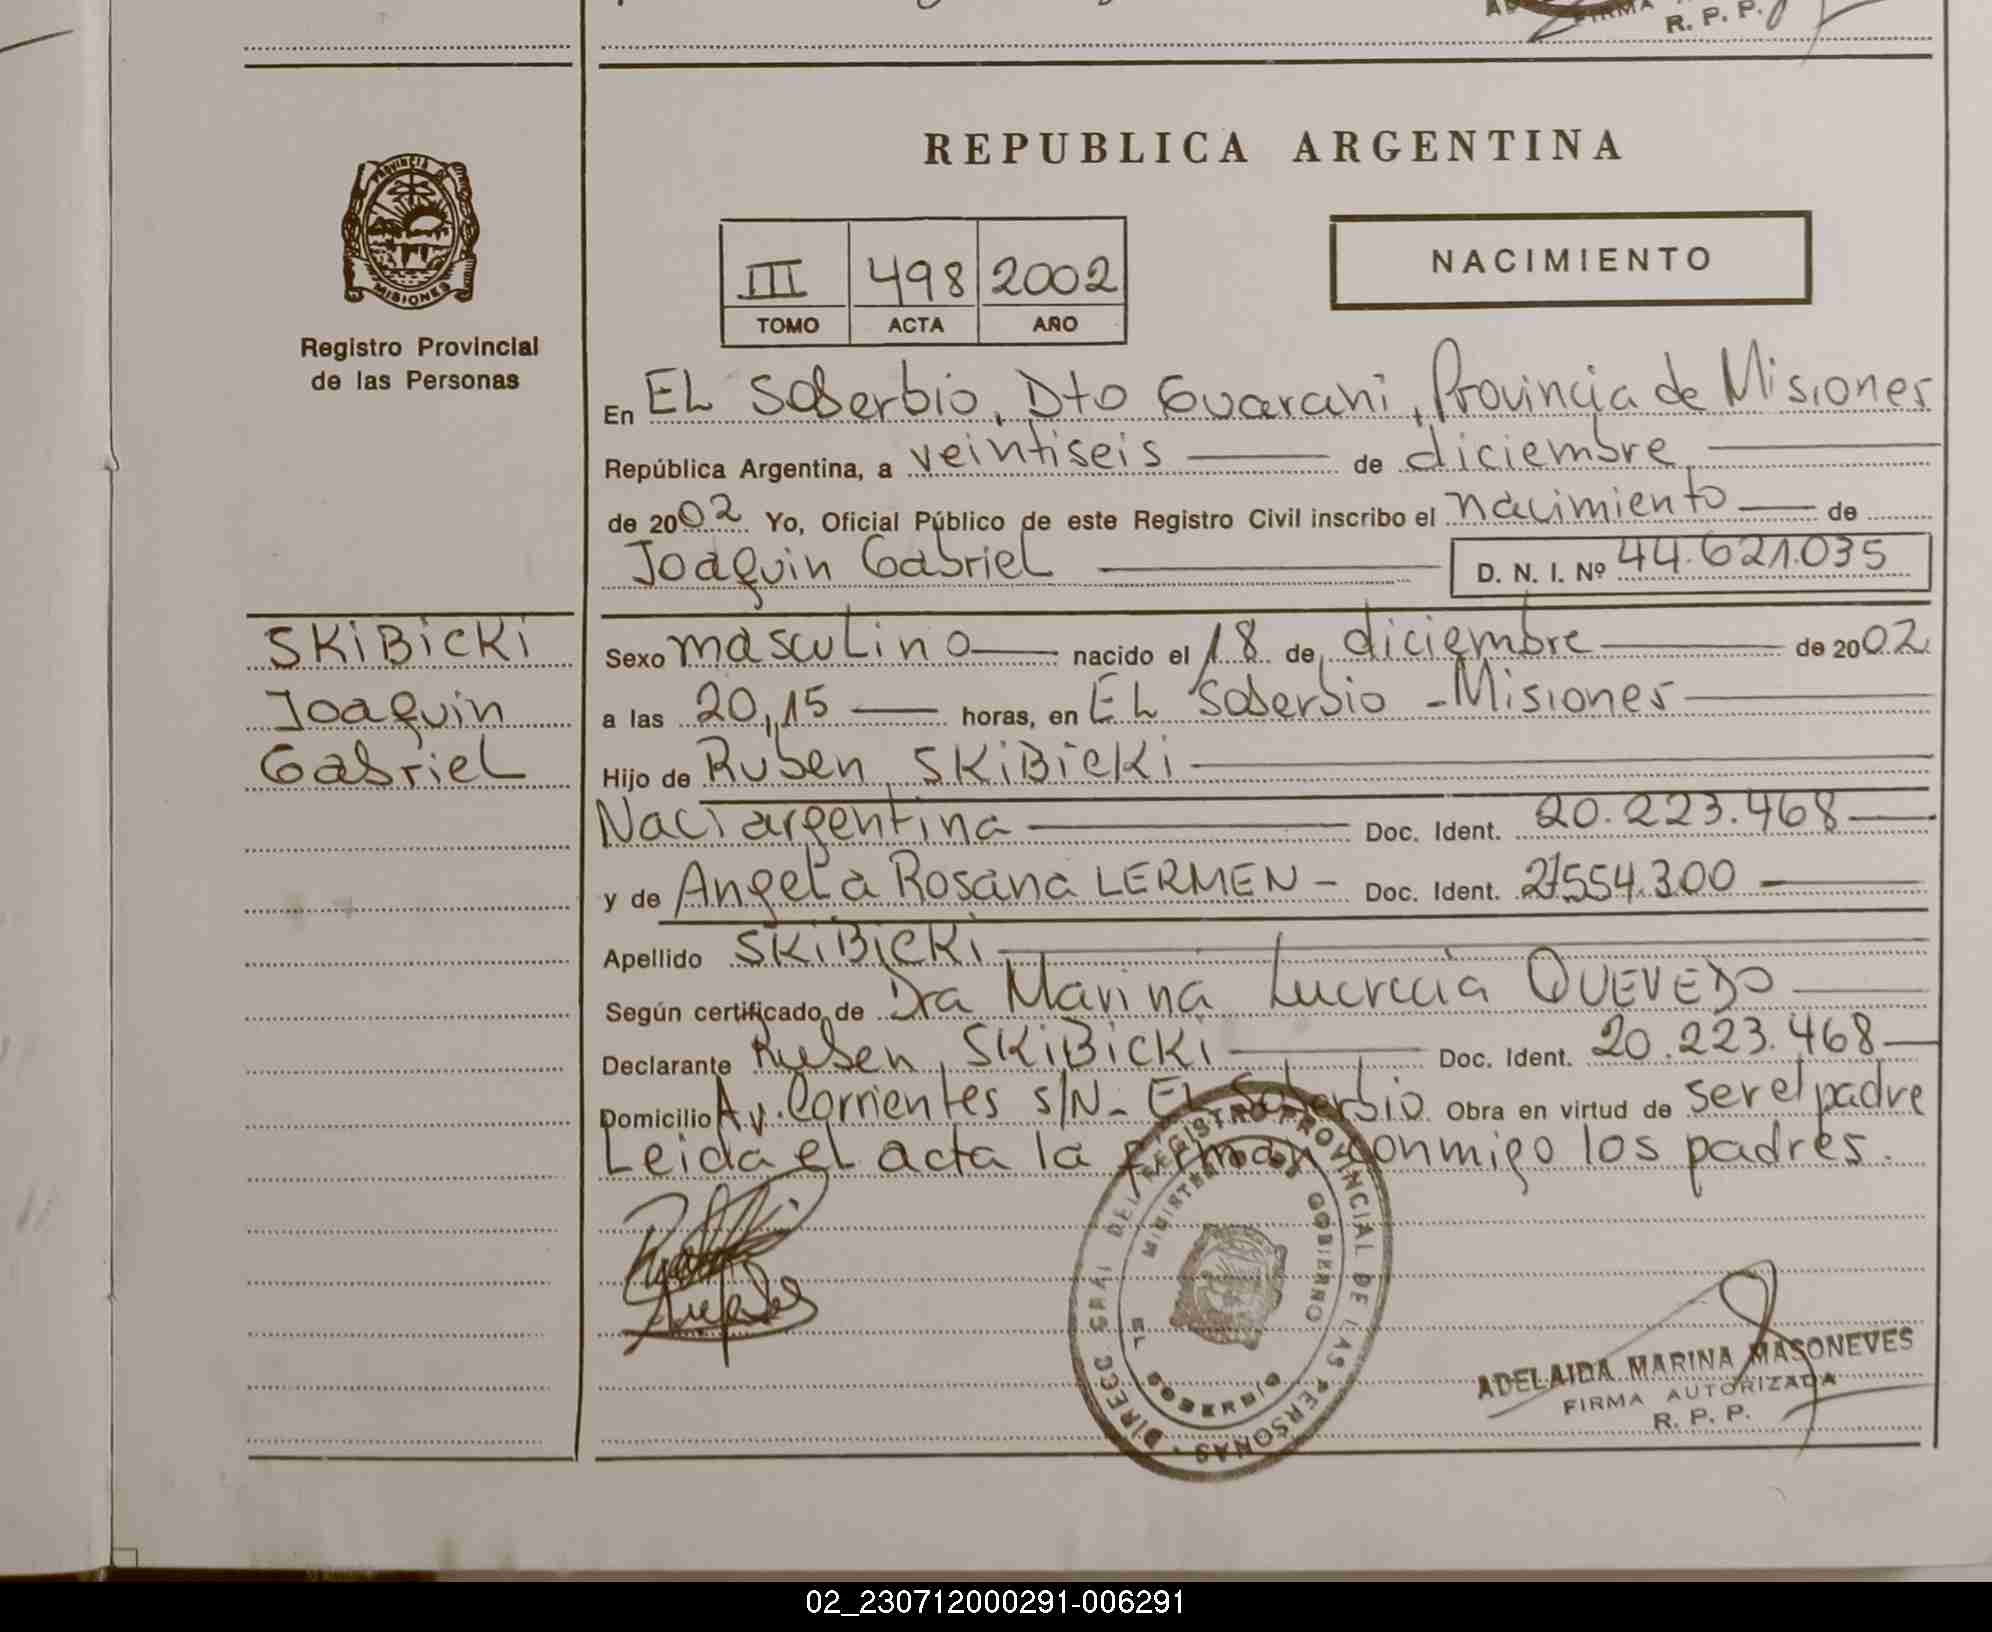 R. P. P.
REPUBLICA ARGENTINA
PROVINCIA DE
MISIONES
Registro Provincial
de las Personas
III 498 2002
TOMO ACTA AÑO
NACIMIENTO
En EL Soberbio, Dto Guarani, Provincia de Misiones
República Argentina, a veintiseis de diciembre
de 2002 Yo, Oficial Público de este Registro Civil inscribo el nacimiento de
Joaquin Gabriel D. N. I. Nº 44.621.035
SKiBicKi
Joaquin
Gabriel
Sexo masculino nacido el 18 de diciembre de 2002
a las 20,15 horas, en EL Soberbio - Misiones
Hijo de Ruben SKiBicKi
Naci argentina Doc. Ident. 20.223.468
y de Angela Rosana LERMEN - Doc. Ident. 27554.300
Apellido SKiBicKi
Según certificado de Dra Marina Lucrecia QUEVEDO
Declarante Ruben SKiBicKi Doc. Ident. 20.223.468
Domicilio Av. Corrientes s/N - EL Soberbio Obra en virtud de ser el padre
Leida el acta la firman conmigo los padres.
DIRECC GRAL DEL REGISTRO PROVINCIAL DE LAS PERSONAS
MINISTERIO DE GOBIERNO
EL SOBERBIO
ADELAIDA MARINA MASONEVES
FIRMA AUTORIZADA
R. P. P.
02_230712000291-006291